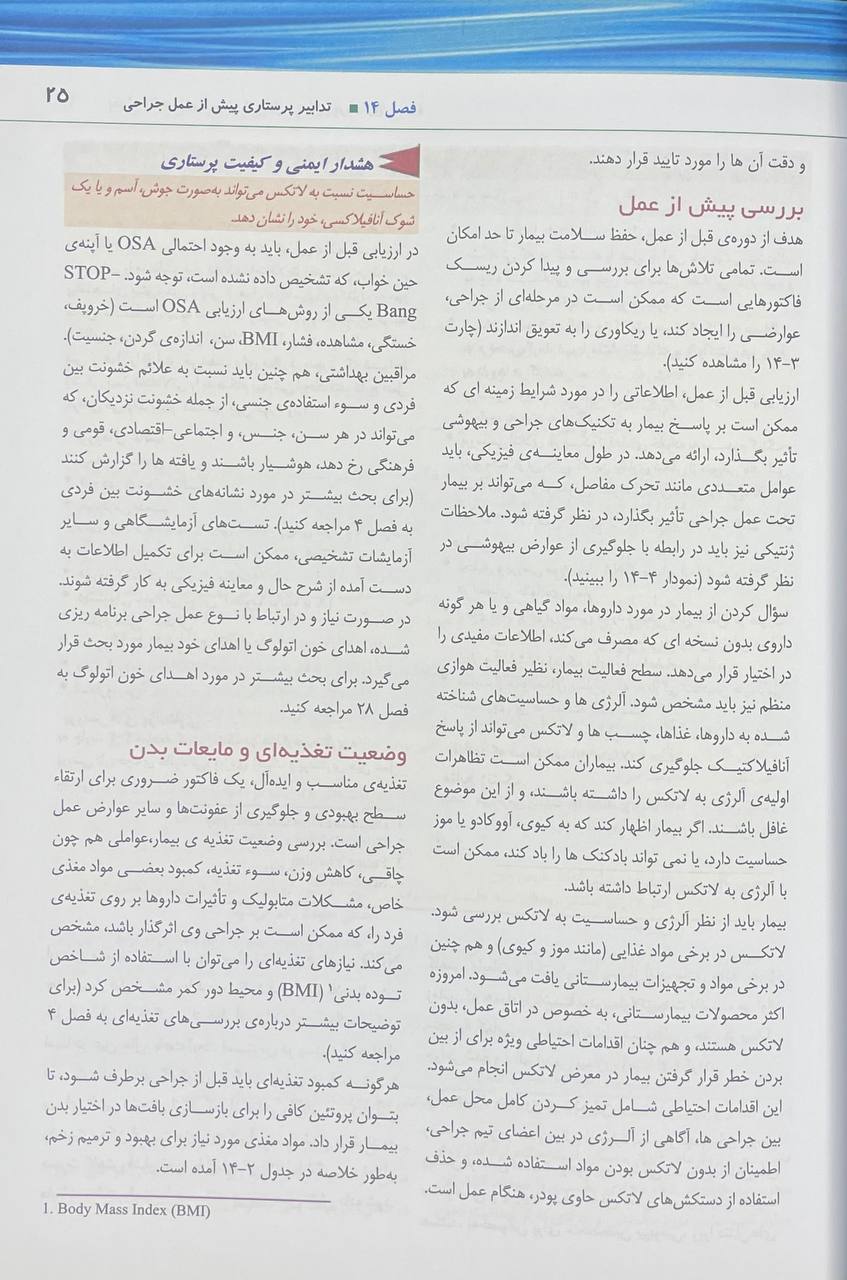 فصل ۱۴ ■ تدابیر پرستاری پیش از عمل جراحی
۲۵
و دقت آن ها را مورد تایید قرار دهند.
بررسی پیش از عمل
هدف از دوره‌ی قبل از عمل، حفظ سلامت بیمار تا حد امکان
است. تمامی تلاش‌ها برای بررسی و پیدا کردن ریسک
فاکتورهایی است که ممکن است در مرحله‌ای از جراحی،
عوارضی را ایجاد کند، یا ریکاوری را به تعویق اندازند (چارت
۳-۱۴ را مشاهده کنید).
ارزیابی قبل از عمل، اطلاعاتی را در مورد شرایط زمینه ای که
ممکن است بر پاسخ بیمار به تکنیک‌های جراحی و بیهوشی
تأثیر بگذارد، ارائه می‌دهد. در طول معاینه‌ی فیزیکی، باید
عوامل متعددی مانند تحرک مفاصل، که می‌تواند بر بیمار
تحت عمل جراحی تأثیر بگذارد، در نظر گرفته شود. ملاحظات
ژنتیکی نیز باید در رابطه با جلوگیری از عوارض بیهوشی در
نظر گرفته شود (نمودار ۴-۱۴ را ببینید).
سؤال کردن از بیمار در مورد داروها، مواد گیاهی و یا هر گونه
داروی بدون نسخه ای که مصرف می‌کند، اطلاعات مفیدی را
در اختیار قرار می‌دهد. سطح فعالیت بیمار، نظیر فعالیت هوازی
منظم نیز باید مشخص شود. آلرژی ها و حساسیت‌های شناخته
شده به داروها، غذاها، چسب ها و لاتکس می‌تواند از پاسخ
آنافیلاکتیک جلوگیری کند. بیماران ممکن است تظاهرات
اولیه‌ی آلرژی به لاتکس را داشته باشند، و از این موضوع
غافل باشند. اگر بیمار اظهار کند که به کیوی، آووکادو یا موز
حساسیت دارد، یا نمی تواند بادکنک ها را باد کند، ممکن است
با آلرژی به لاتکس ارتباط داشته باشد.
بیمار باید از نظر آلرژی و حساسیت به لاتکس بررسی شود.
لاتکس در برخی مواد غذایی (مانند موز و کیوی) و هم چنین
در برخی مواد و تجهیزات بیمارستانی یافت می‌شود. امروزه
اکثر محصولات بیمارستانی، به خصوص در اتاق عمل، بدون
لاتکس هستند، و هم چنان اقدامات احتیاطی ویژه برای از بین
بردن خطر قرار گرفتن بیمار در معرض لاتکس انجام می‌شود.
این اقدامات احتیاطی شامل تمیز کردن کامل محل عمل،
بین جراحی ها، آگاهی از آلرژی در بین اعضای تیم جراحی،
اطمینان از بدون لاتکس بودن مواد استفاده شده، و حذف
استفاده از دستکش‌های لاتکس حاوی پودر، هنگام عمل است.
هشدار ایمنی و کیفیت پرستاری
حساسیت نسبت به لاتکس می‌تواند به‌صورت جوش، آسم و یا یک
شوک آنافیلاکسی، خود را نشان دهد.
در ارزیابی قبل از عمل، باید به وجود احتمالی OSA یا آپنه‌ی
حین خواب، که تشخیص داده نشده است، توجه شود. STOP-
Bang یکی از روش‌های ارزیابی OSA است (خروپف،
خستگی، مشاهده، فشار، BMI، سن، اندازه‌ی گردن، جنسیت).
مراقبین بهداشتی، هم چنین باید نسبت به علائم خشونت بین
فردی و سوء استفاده‌ی جنسی، از جمله خشونت نزدیکان، که
می‌تواند در هر سن، جنس، و اجتماعی-اقتصادی، قومی و
فرهنگی رخ دهد، هوشیار باشند و یافته ها را گزارش کنند
(برای بحث بیشتر در مورد نشانه‌های خشونت بین فردی
به فصل ۴ مراجعه کنید). تست‌های آزمایشگاهی و سایر
آزمایشات تشخیصی، ممکن است برای تکمیل اطلاعات به
دست آمده از شرح حال و معاینه فیزیکی به کار گرفته شوند.
در صورت نیاز و در ارتباط با نوع عمل جراحی برنامه ریزی
شده، اهدای خون اتولوگ یا اهدای خود بیمار مورد بحث قرار
می‌گیرد. برای بحث بیشتر در مورد اهدای خون اتولوگ به
فصل ۲۸ مراجعه کنید.
وضعیت تغذیه‌ای و مایعات بدن
تغذیه‌ی مناسب و ایده‌آل، یک فاکتور ضروری برای ارتقاء
سطح بهبودی و جلوگیری از عفونت‌ها و سایر عوارض عمل
جراحی است. بررسی وضعیت تغذیه ی بیمار،عواملی هم چون
چاقی، کاهش وزن، سوء تغذیه، کمبود بعضی مواد مغذی
خاص، مشکلات متابولیک و تأثیرات داروها بر روی تغذیه‌ی
فرد را، که ممکن است بر جراحی وی اثرگذار باشد، مشخص
می‌کند. نیازهای تغذیه‌ای را می‌توان با استفاده از شاخص
توده بدنی۱ (BMI) و محیط دور کمر مشخص کرد (برای
توضیحات بیشتر درباره‌ی بررسی‌های تغذیه‌ای به فصل ۴
مراجعه کنید).
هرگونه کمبود تغذیه‌ای باید قبل از جراحی برطرف شود، تا
بتوان پروتئین کافی را برای بازسازی بافت‌ها در اختیار بدن
بیمار قرار داد. مواد مغذی مورد نیاز برای بهبود و ترمیم زخم،
به‌طور خلاصه در جدول ۲-۱۴ آمده است.
1. Body Mass Index (BMI)